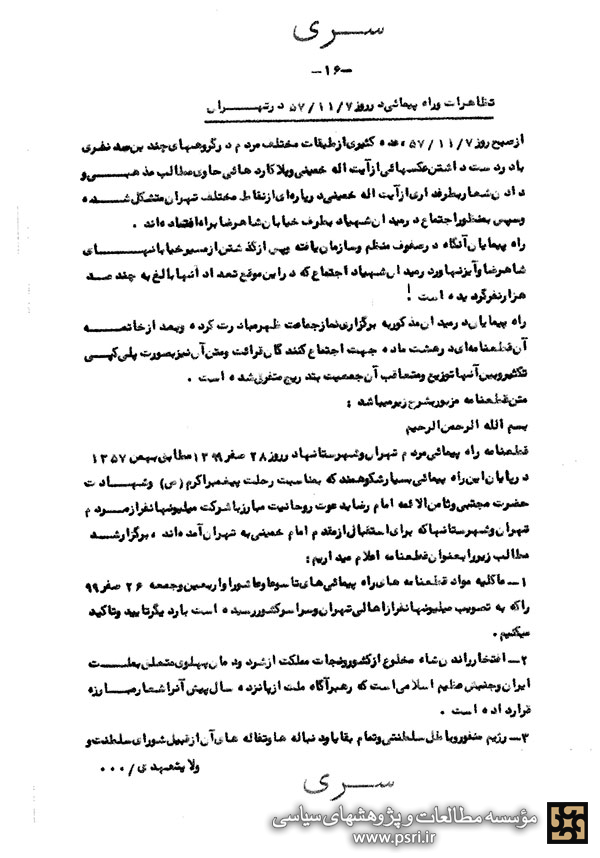 سری
-۱۶-
تظاهرات وراه پیمائی د رروز ۵۷/۱۱/۷ د رتهـــران
ازصبح روز ۵۷/۱۱/۷ عده کثیری ازطبقات مختلف مردم د ر گروههای چند ین صد نفری
باد ردست د اشتن عکسهائی از آیت اله خمینی وپلاکارد هائی حاوی مطالب مذ هبـــی و
د اد ن شعار بطرفد اری از آیت اله خمینی د رپاره ای ازنقاط مختلف تهران متشکل شـــده
وسپس بمنظور اجتماع د رمید ان شهیاد بطرف خیابان شاهرضا براه افتاده اند .
راه پیمایان آنگاه د رصفوف منظم وسازمان یافته وپس از گذ شتن از مسیر خیابانهـــای
شاهرضا و آیزنهاورد رمید ان شهیاد اجتماع که د ر این موقع تعد اد آنها بالغ به چند صد
هزارنفرگرد یده است !
راه پیمایان د رمید ان مذ کور به برگزاری نمازجماعت ظهر مباد رت کرده وبعد از خاتمـــه
آن قطعنامه ای د رهشت ماده جهت اجتماع کنند گان قرائت ومتن آن نیز بصورت پلی کپـــی
تکثیر وبین آنها توزیع ومتعاقب آن جمعیت بتد ریج متفرق شده است .
متن قطعنامه مزبور بشرح زیر میباشد :
بسم الله الرحمن الرحیم
قطعنامه راه پیمائی مرد م تهران وشهرستانهاد رروز ۲۸ صفر ۱۳۹۹ مطابق بهمن ۱۳۵۷
د رپایان این راه پیمائی بسیار شکوهمند که بمناسبت رحلت پیغمبر اکرم (ص) وشهـــاد ت
حضرت مجتبی وثامن الائمه امام رضا بد عوت روحانیت مبارز با شرکت میلیونها نفر از مـــرد م
تهران وشهرستانها که برای استقبال از مقد م امام خمینی به تهران آمده اند ، برگزار شـــد
مطالب زیر را بعنوان قطعنامه اعلام مید اریم :
۱ــ ما کلیه مواد قطعنامه های راه پیمائی های تاسوعا وعاشورا و اربعین وجمعه ۲۶ صفر ۹۹
را که به تصویب میلیونها نفر از اهالی تهران وسراسر کشور رسیده است بارد یگر تایید وتاکید
میکنیم .
۲ــ افتخار راند ن شاه مخلوع از کشور ونجات مملکت ازشر د ود مان پهلوی متعلق بملـــت
ایران وجنبش عظیم اسلامی است که رهبر آگاه ملت از پانزده سال پیش آنرا شعار مبـــارزه
قرارد اد ه است .
۳ــ رژیم منفور وباطل سلطنتی وتمام بقایا ود نباله ها وتفاله های آن از قبیل شورای سلطنت و
ولا یتعهد ی / ۰۰۰
سری
مؤسسه مطالعات و پژوهشهای سیاسی
www.psri.ir